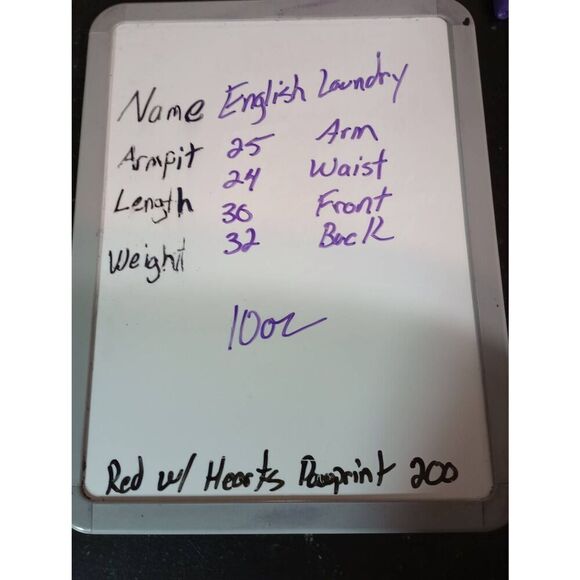 Name English Laundry
Armpit 25 Arm
24 Waist
Length 30 Front
32 Back
Weight
10oz
Red w/ Hearts Pawprint 200